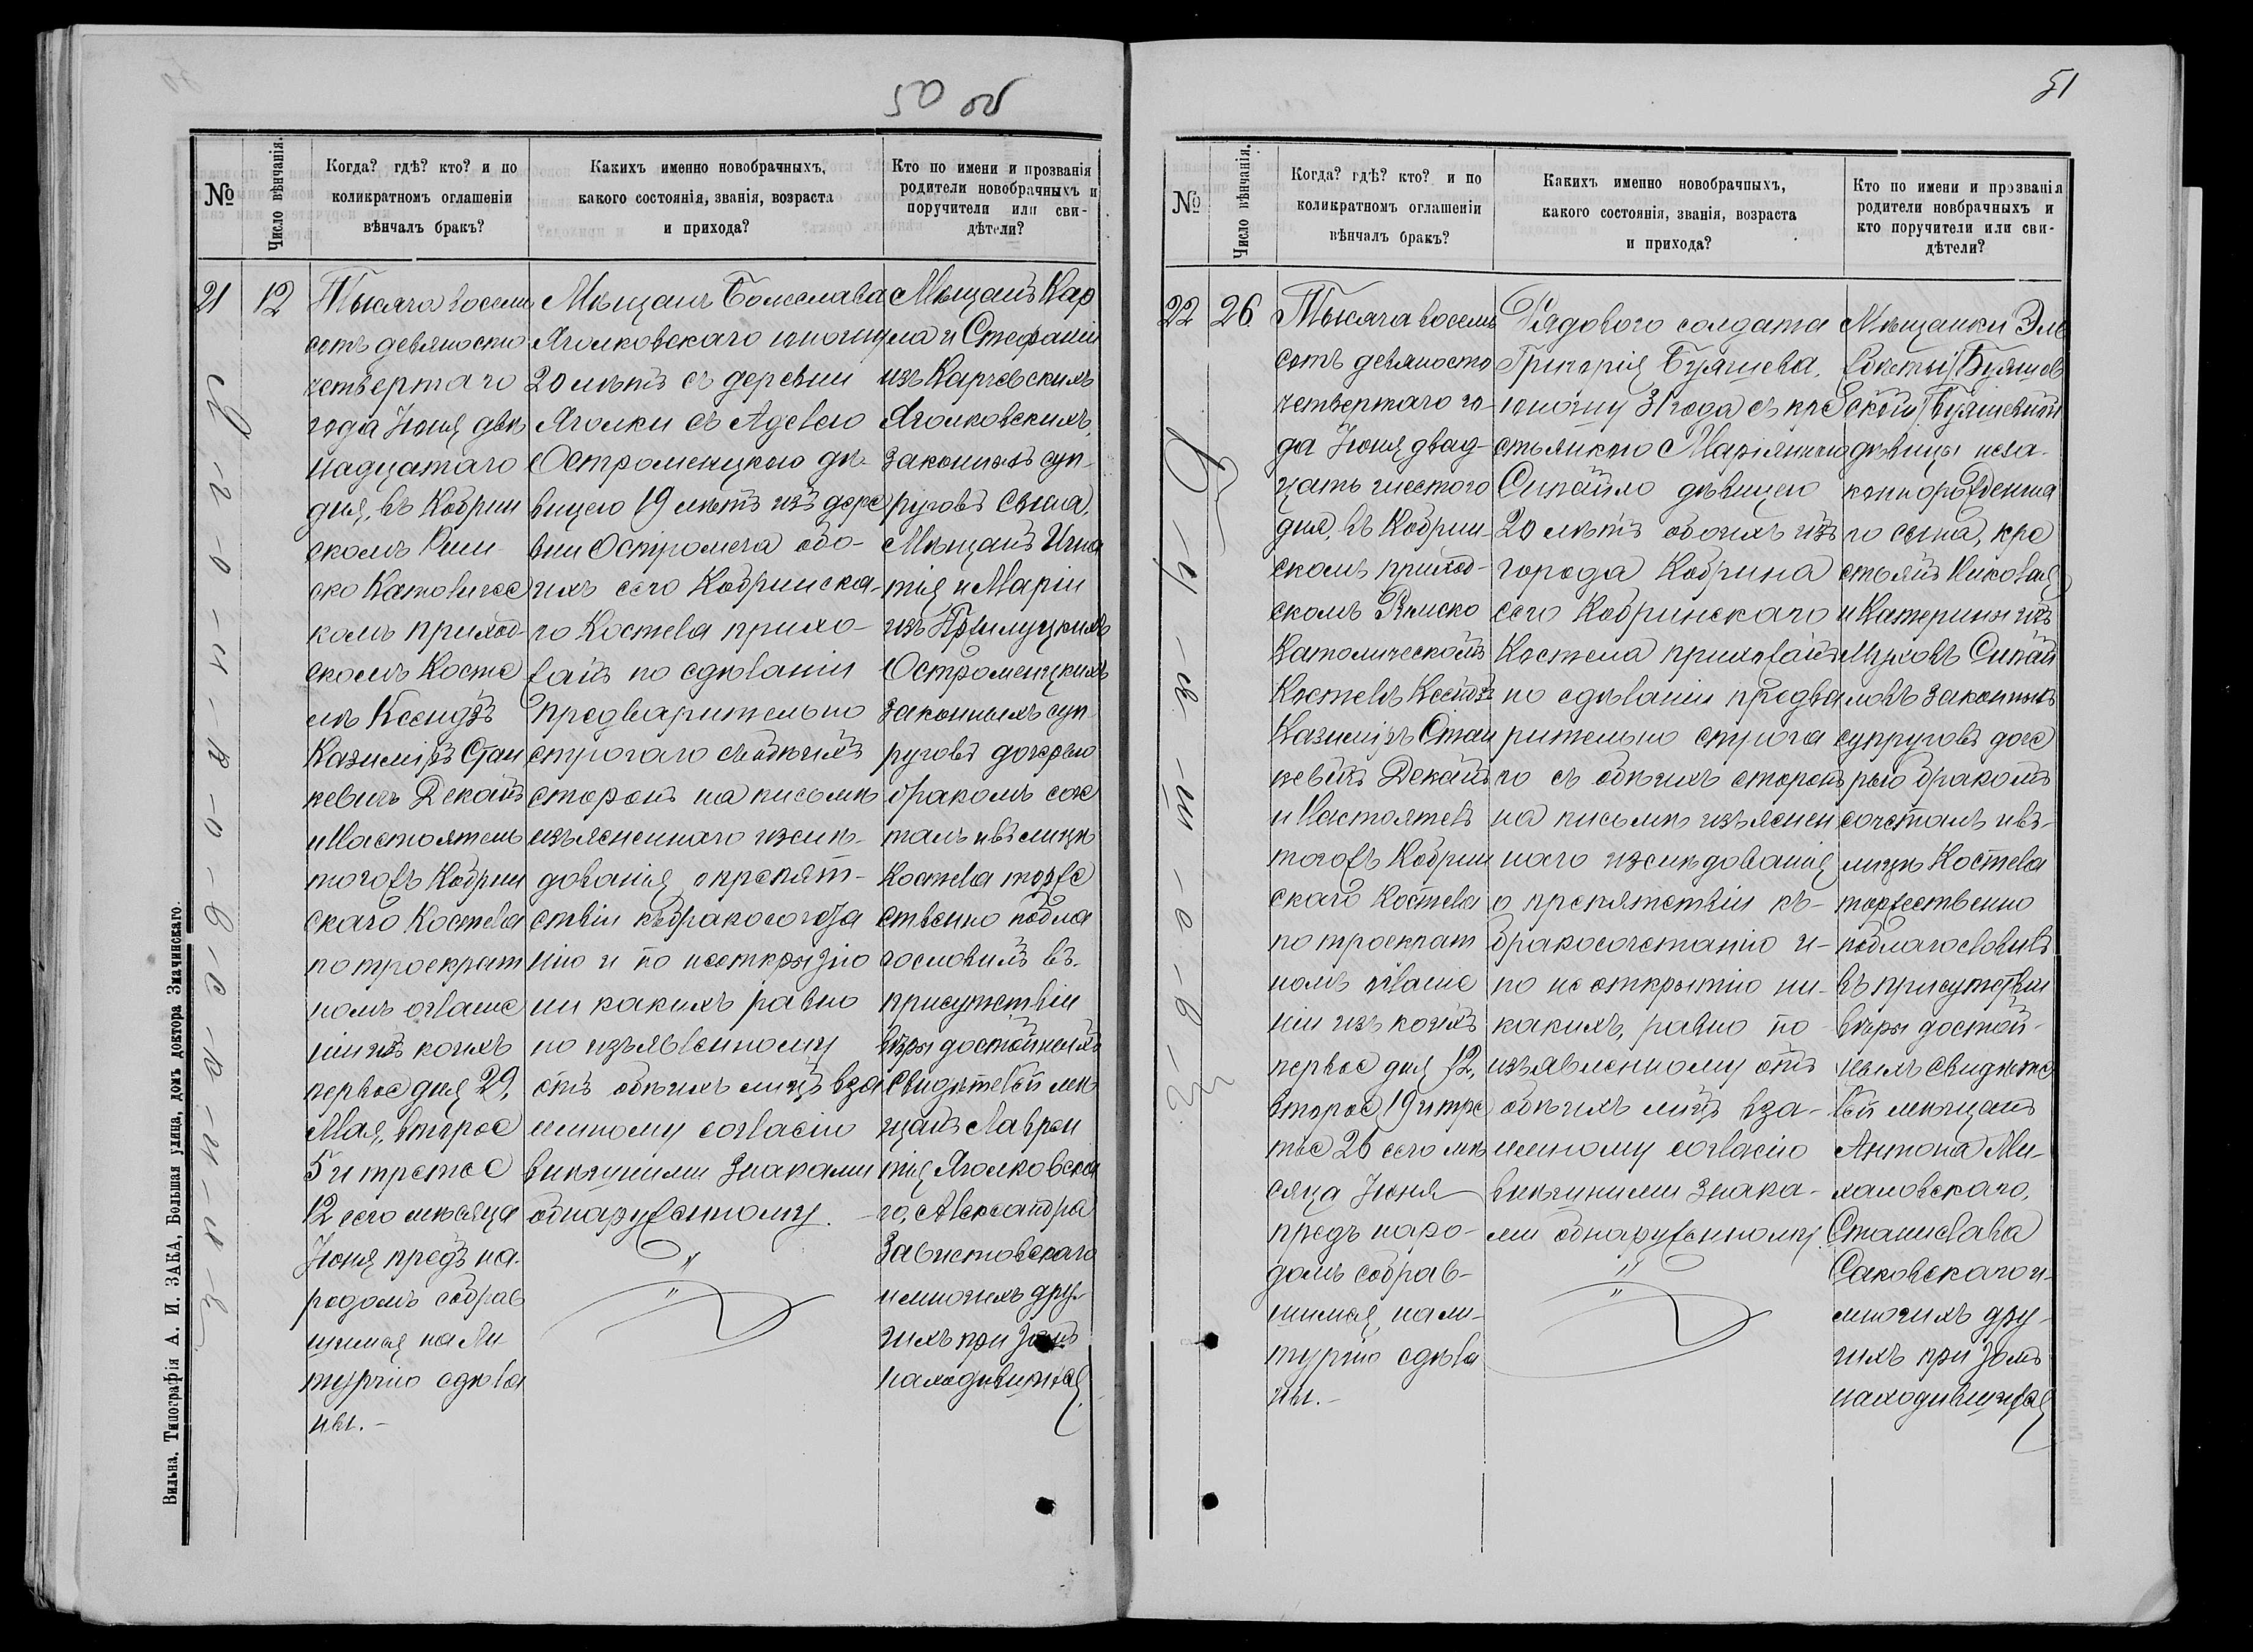 50 об
№
Число вѣнчанія.
Когда? гдѣ? кто? и по
коликратномъ оглашеніи
вѣнчалъ бракъ?
Какихъ именно новобрачныхъ,
какого состоянія, званія, возраста
и прихода?
Кто по имени и прозванія
родители новобрачныхъ и
поручители или сви-
дѣтели?
21
12
Тысяча восемь
сотъ девяносто
четвертаго
года Іюня двѣ
надцатаго
дня, въ Кобрин
скомъ Рим
ско Католичес
комъ приход-
скомъ Косте
лѣ Ксендзъ
Казиміръ Стан
кевичъ Деканъ
и Настоятель
тогожъ Кобрин
скаго Костела
по троекрат
номъ оглаше
ніи изъ коихъ
первое дня 29,
Мая, второе
5 и третье
12 сего мѣсяца
Іюня предъ на-
родомъ собрав
шимся на Ли
тургію сдѣла
ны.-
Мѣщанъ Болеслава
Яголковскаго юношу
20 лѣтъ съ деревни
Яголки съ Аделею
Остроменцкою дѣ-
вицею 19 лѣтъ изъ дере
вни Остромеча обо-
ихъ сего Кобринска-
го Костела прихо-
жанъ по сдѣланіи
предварительно
строгаго съ обѣихъ
сторонъ на письмѣ
изъясненнаго изслѣ-
дованія о препят-
ствіи къ бракосочета
нію и по неоткрытію
ни какихъ равно
по изъявленному
отъ обѣихъ лицъ вза
имному согласію
внѣшними знаками
обнаруженному.
Мѣщанъ Кар
ла и Стефаніи
изъ Карчевскихъ
Яголковскихъ,
законныхъ суп-
руговъ сына,
Мѣщанъ Игна
тія и Маріи
изъ Прилуцкихъ
Остроменцкихъ
законныхъ суп-
руговъ дочерью
бракомъ соче
талъ и въ лицѣ
Костела торже
ственно побла
гословилъ въ-
присутствіи
вѣры достойныхъ
свидѣтелей мѣ
щанъ Лаврен
тія Яголковска
го, Александра
Завистовскаго
и многихъ дру-
гихъ при томъ
находившихся
Я-г-о-л-к-о-в-с-к-і-й
Вильна. Типографія А. И. ЗАКА, Большая улица, домъ доктора Змачинскаго.
51
№
Число вѣнчанія.
Когда? гдѣ? кто? и по
коликратномъ оглашеніи
вѣнчалъ бракъ?
Какихъ именно новобрачныхъ,
какого состоянія, званія, возраста
и прихода?
Кто по имени и прозванія
родители новбрачныхъ и
кто поручители или сви-
дѣтели?
22
26
Тысяча восемь
сотъ девяносто
четвертаго го-
да Іюня двад-
цать шестого
дня, въ Кобрин-
скомъ приход-
скомъ Римско
Католическомъ
Костелѣ Ксендзъ
Казиміръ Стан
кевичъ Деканъ
и Настоятель
тогожъ Кобрин
скаго Костела
по троекрат
номъ оглаше
ніи изъ коихъ
первое дня 12,
второе 19 и тре
тье 26 сего мѣ
сяца Іюня
предъ наро-
домъ собрав-
шимся на ли-
тургію сдѣла
ны.-
Рядового солдата
Григорія Буяшева,
юношу 31 года съ кре
стьянкою Маріянною
Сипайло дѣвицею
20 лѣтъ обоихъ изъ
города Кобрина
сего Кобринскаго
Костела прихожанъ
по сдѣланіи предва
рительно строга
го съ обѣихъ сторонъ
на письмѣ изъяснен
наго изслѣдованія
о препятствіи къ-
бракосочетанію и-
по не открытію ни-
какихъ, равно по-
изъявленному отъ
обѣихъ лицъ вза-
имному согласію
внѣшними знака-
ми обнаруженному.
Мѣщанки Эль
жбеты Буяшев
ской
дѣвицы неза-
коннорожденна
го сына, кре
стьянъ Николая
и Катерины изъ
Сипай
ловъ законныхъ
супруговъ доче
рью бракомъ
сочеталъ и въ-
лицѣ Костела
торжественно
поблагословилъ
въ присутствіи
вѣры достой-
ныхъ свидѣте
лей мѣщанъ
Антона Ми-
халовскаго,
Станислава
Саковскаго и-
многихъ дру-
гихъ при томъ
находившихся
Б-у-я-ш-е-в-ъ